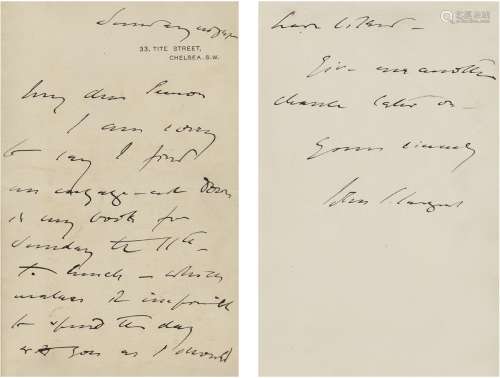 Sunday
33, TITE STREET,
CHELSEA. S.W.
My dear
I am sorry
to say I find
an engagement down
in my book for
Sunday the 11th
to lunch – which
makes it impossible
to spend the day
with you as I should
have liked –
Give me another
chance later on –
Yours sincerely
John S Sargent